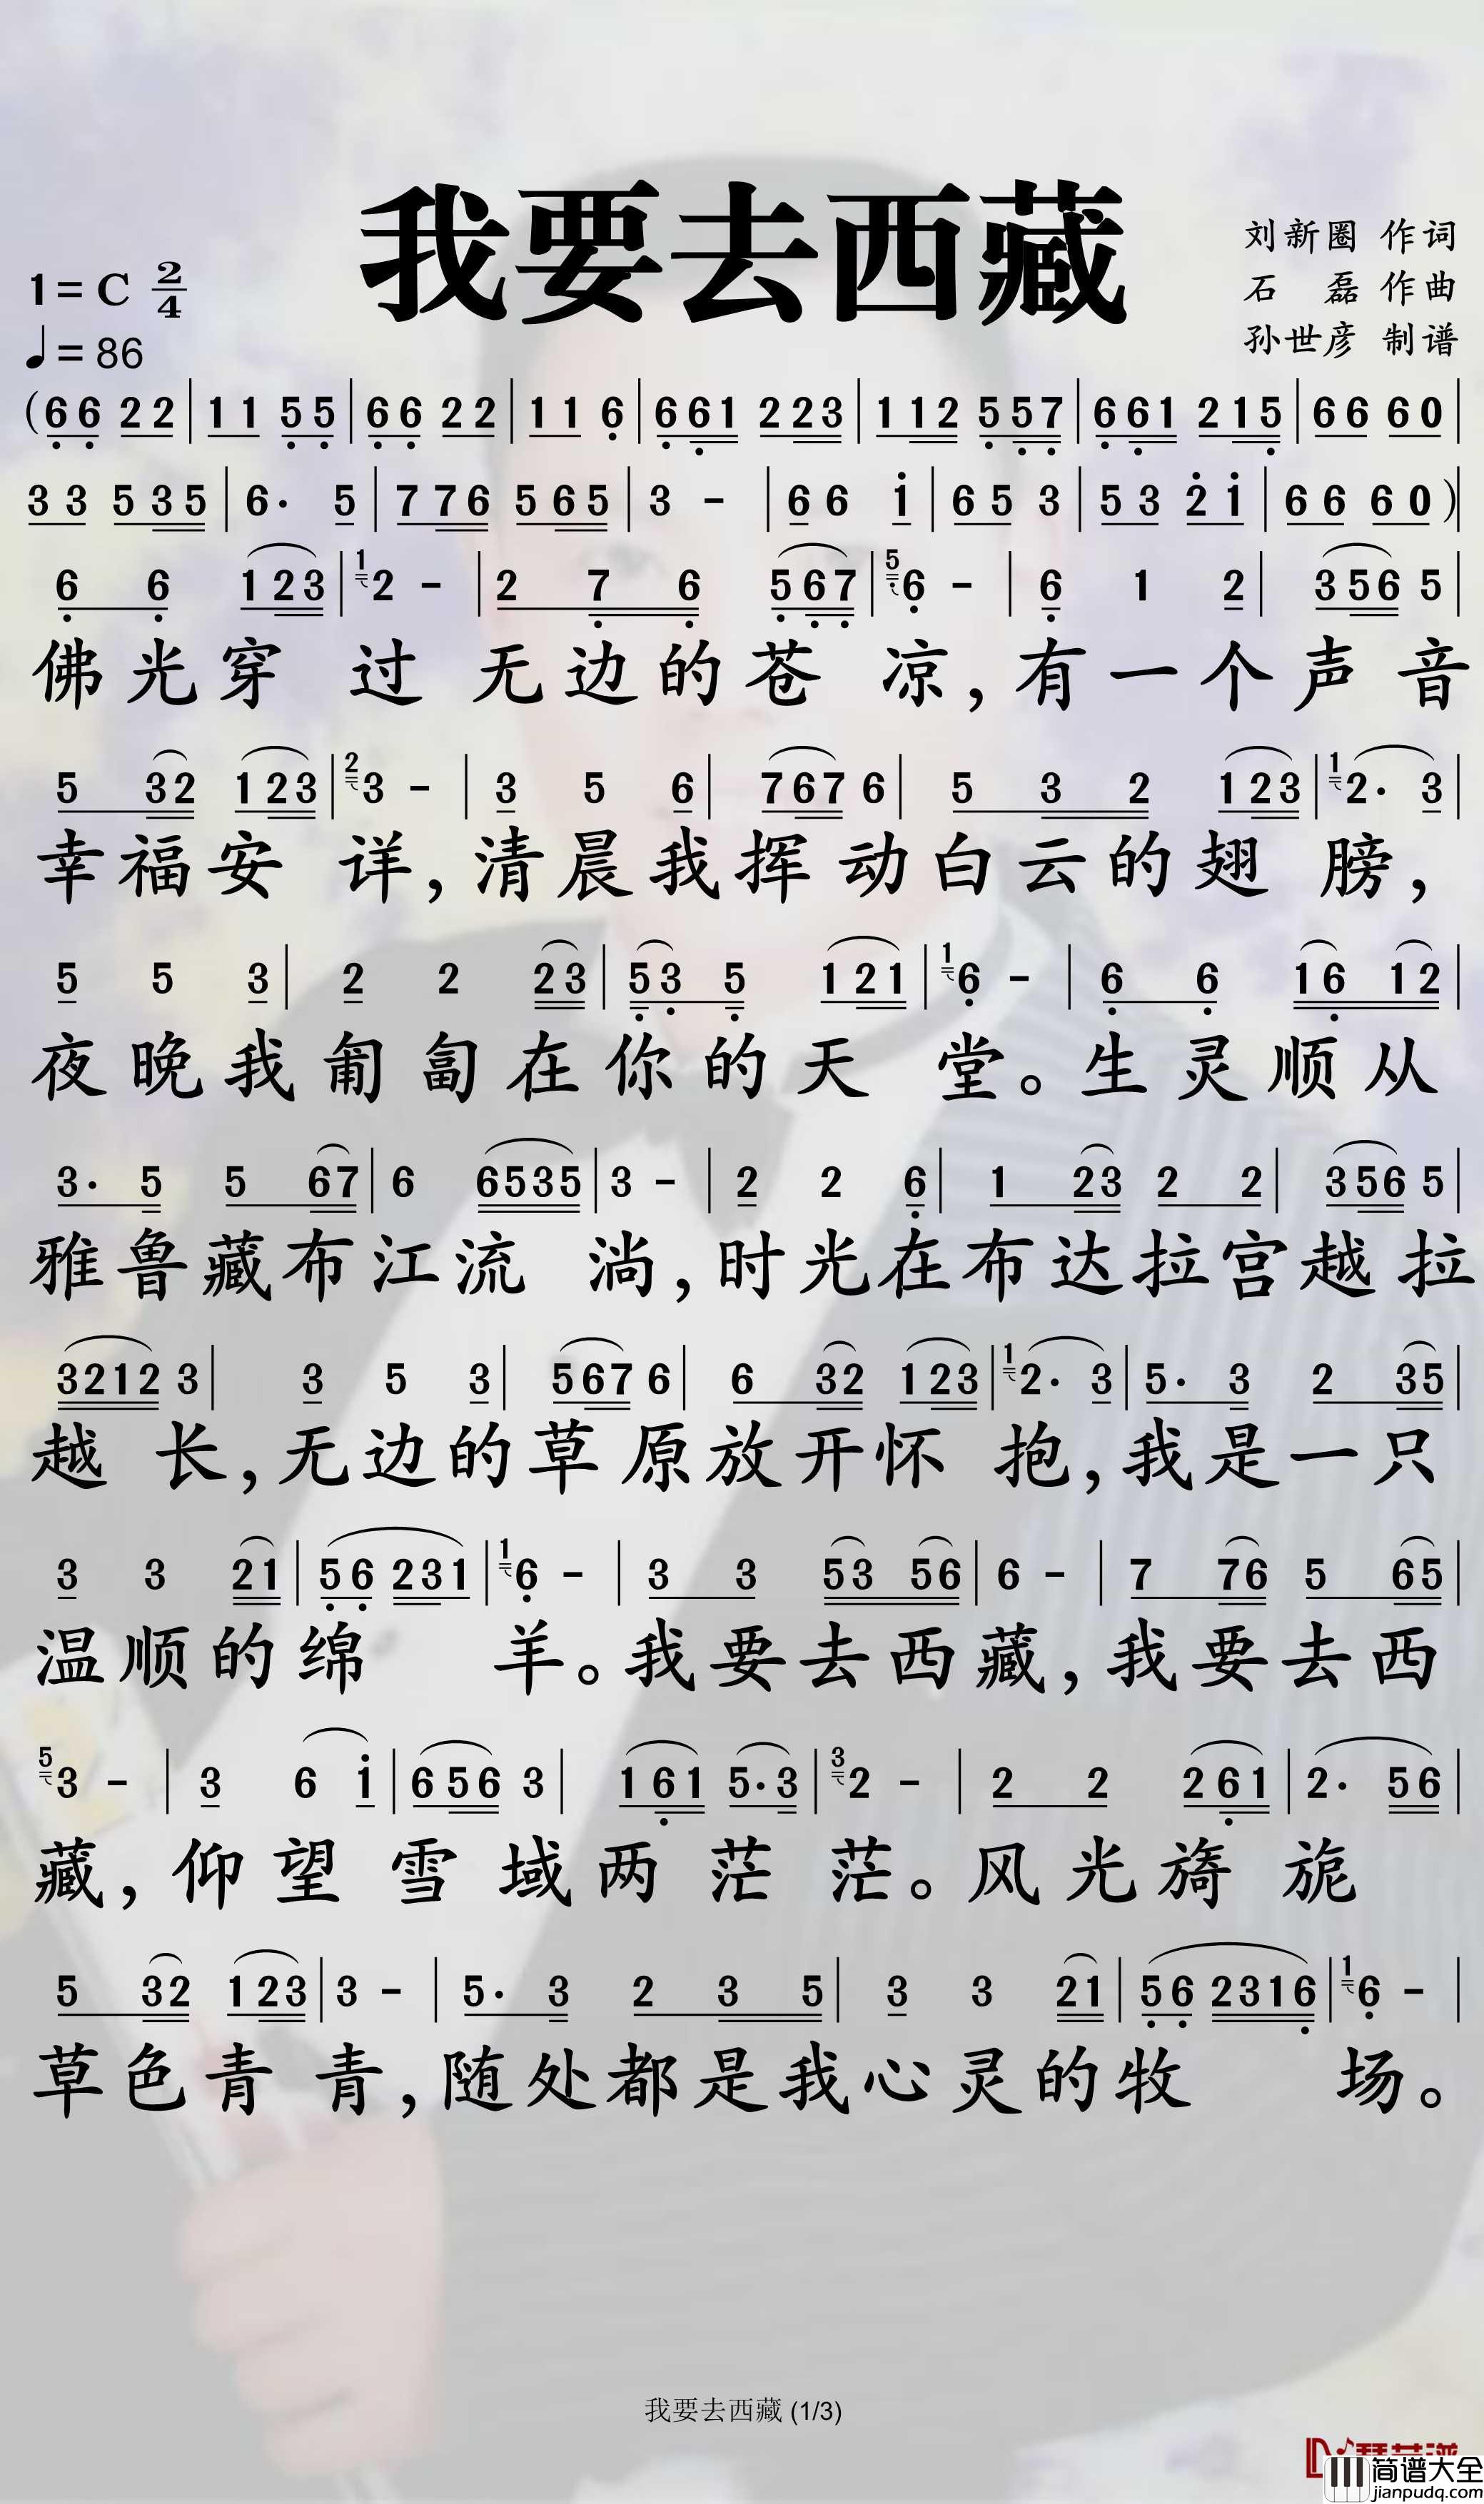 我要去西藏
刘新圈 作词
石 磊 作曲
孙世彦 制谱
1=C 2/4
♩=86
(6 6 2 2 | 1 1 5 5 | 6 6 2 2 | 1 1 6 | 6 6 1 2 2 3 | 1 1 2 5 5 7 | 6 6 1 2 1 5 | 6 6 6 0 |
3 3 5 3 5 | 6· 5 | 7 7 6 5 6 5 | 3 - | 6 6 1 | 6 5 3 | 5 3 2 1 | 6 6 6 0 )|
6 6 1 2 3 | 1 2 - | 2 7 6 5 6 7 | 5 6 - | 6 1 2 | 3 5 6 5 |
佛光穿 过 无边的苍 凉,有一个声 音
5 3 2 1 2 3 | 2 3 - | 3 5 6 | 7 6 7 6 | 5 3 2 1 2 3 | 1 2· 3 |
幸福安 详,清晨我挥 动白云的翅 膀,
5 5 3 | 2 2 2 3 | 5 3 5 1 2 1 | 1 6 - | 6 6 1 6 1 2 |
夜晚我匍匐在你的天 堂。生灵顺从
3· 5 5 6 7 | 6 6 5 3 5 | 3 - | 2 2 6 | 1 2 3 2 2 | 3 5 6 5 |
雅鲁藏布江流 淌,时光在布达拉宫越拉
3 2 1 2 3 | 3 5 3 | 5 6 7 6 | 6 3 2 1 2 3 | 1 2· 3 | 5· 3 2 3 5 |
越 长,无边的草原放开怀 抱,我是一只
3 3 2 1 | 5 6 2 3 1 | 1 6 - | 3 3 5 3 5 6 | 6 - | 7 7 6 5 6 5 |
温顺的绵 羊。我要去西藏,我要去西
5 3 - | 3 6 1 | 6 5 6 3 | 1 6 1 5· 3 | 3 2 - | 2 2 2 6 1 | 2· 5 6 |
藏,仰望雪域两茫茫。风光旖旎
5 3 2 1 2 3 | 3 - | 5· 3 2 3 5 | 3 3 2 1 | 5 6 2 3 1 6 | 1 6 - |
草色青青,随处都是我心灵的牧 场。
我要去西藏 (1/3)
简谱大全
jianpudq.com